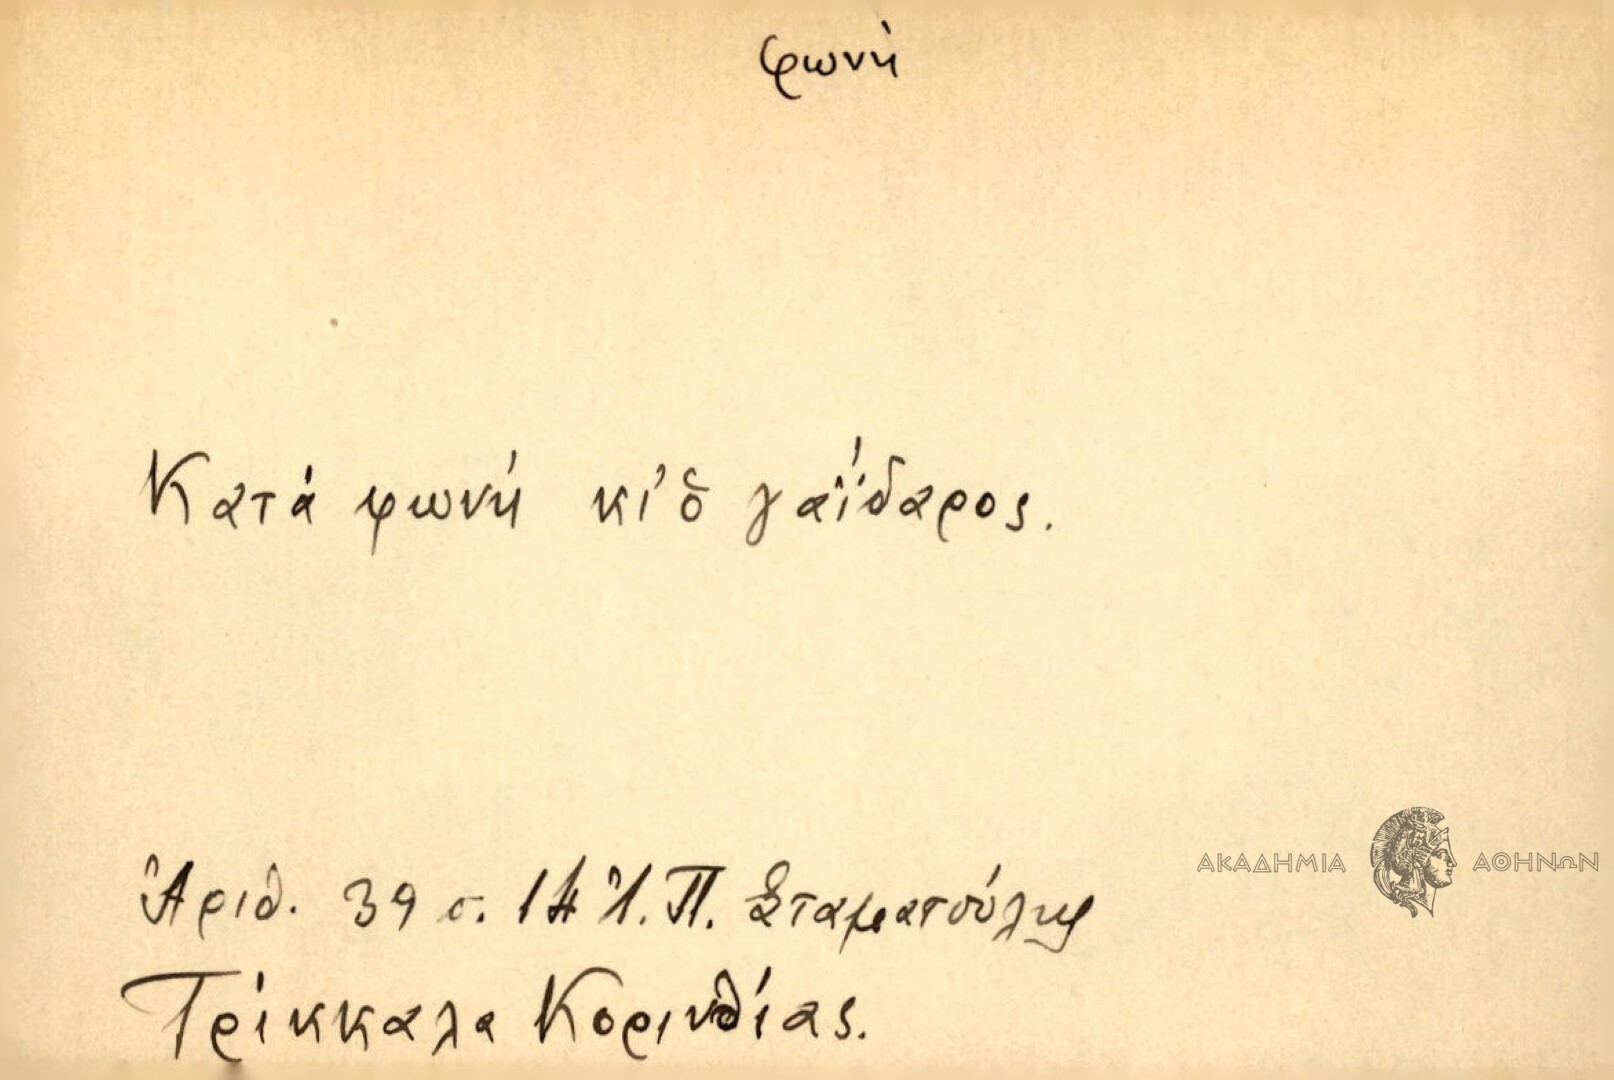 φωνή
Κατά φωνή κι' ὁ γαΐδαρος.
ΑΚΑΔΗΜΙΑ ΑΘΗΝΩΝ
Ἀριθ. 39 σ. 14 Ἰ. Π. Σταματούλης
Τρίκκαλα Κορινθίας.